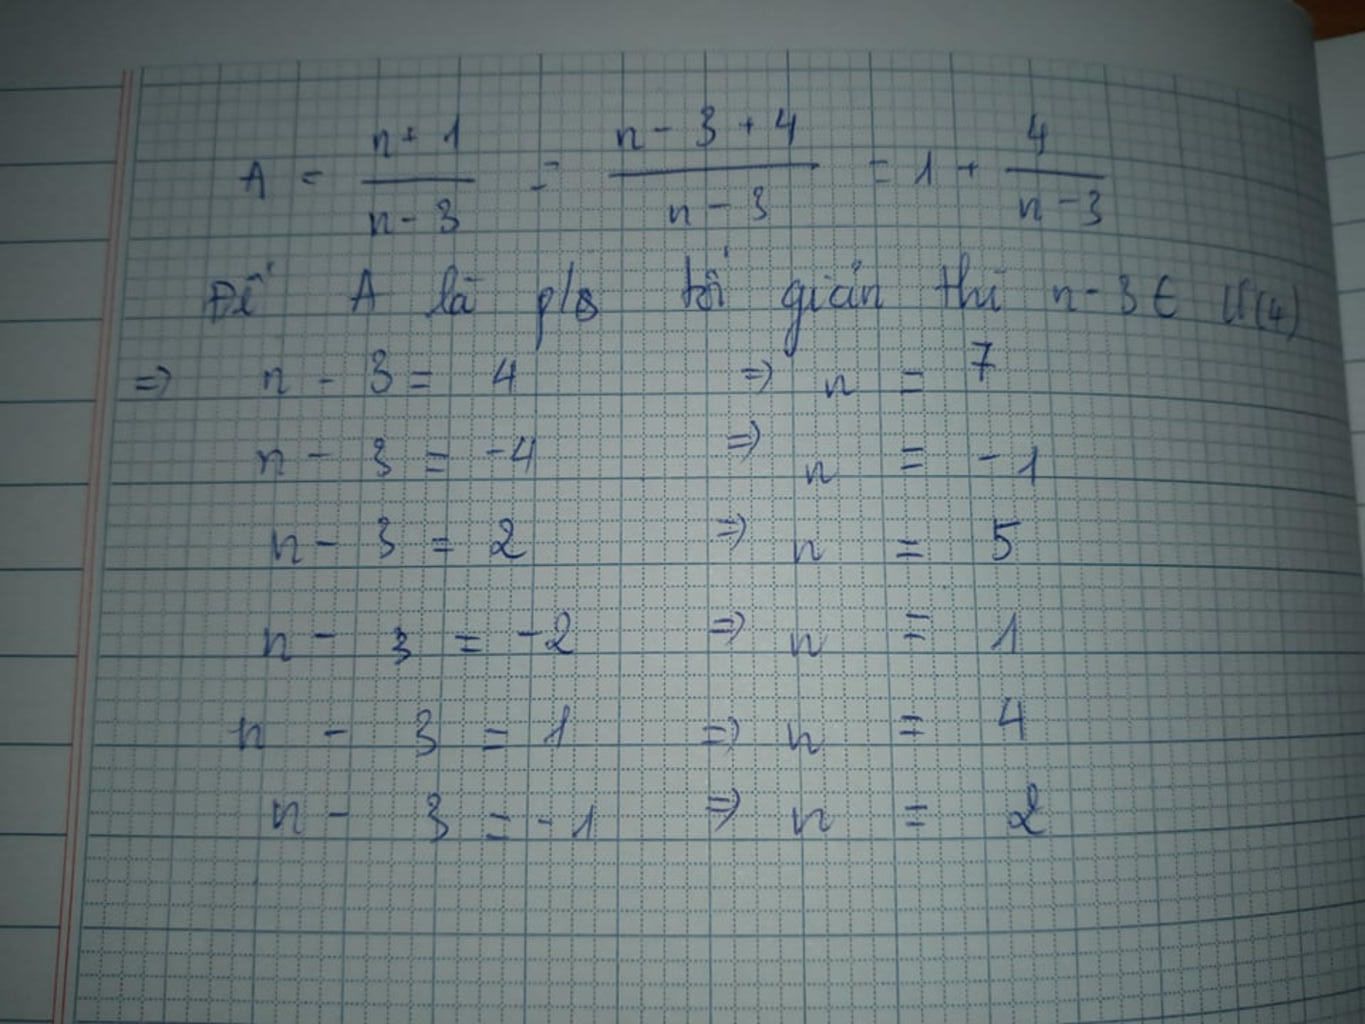 A = \frac{n+1}{n-3} = \frac{n-3+4}{n-3} = 1 + \frac{4}{n-3}
Để A là p/s tối giản thì n-3 ∈ Ư(4)
=> n - 3 = 4 => n = 7
n - 3 = -4 => n = -1
n - 3 = 2 => n = 5
n - 3 = -2 => n = 1
n - 3 = 1 => n = 4
n - 3 = -1 => n = 2